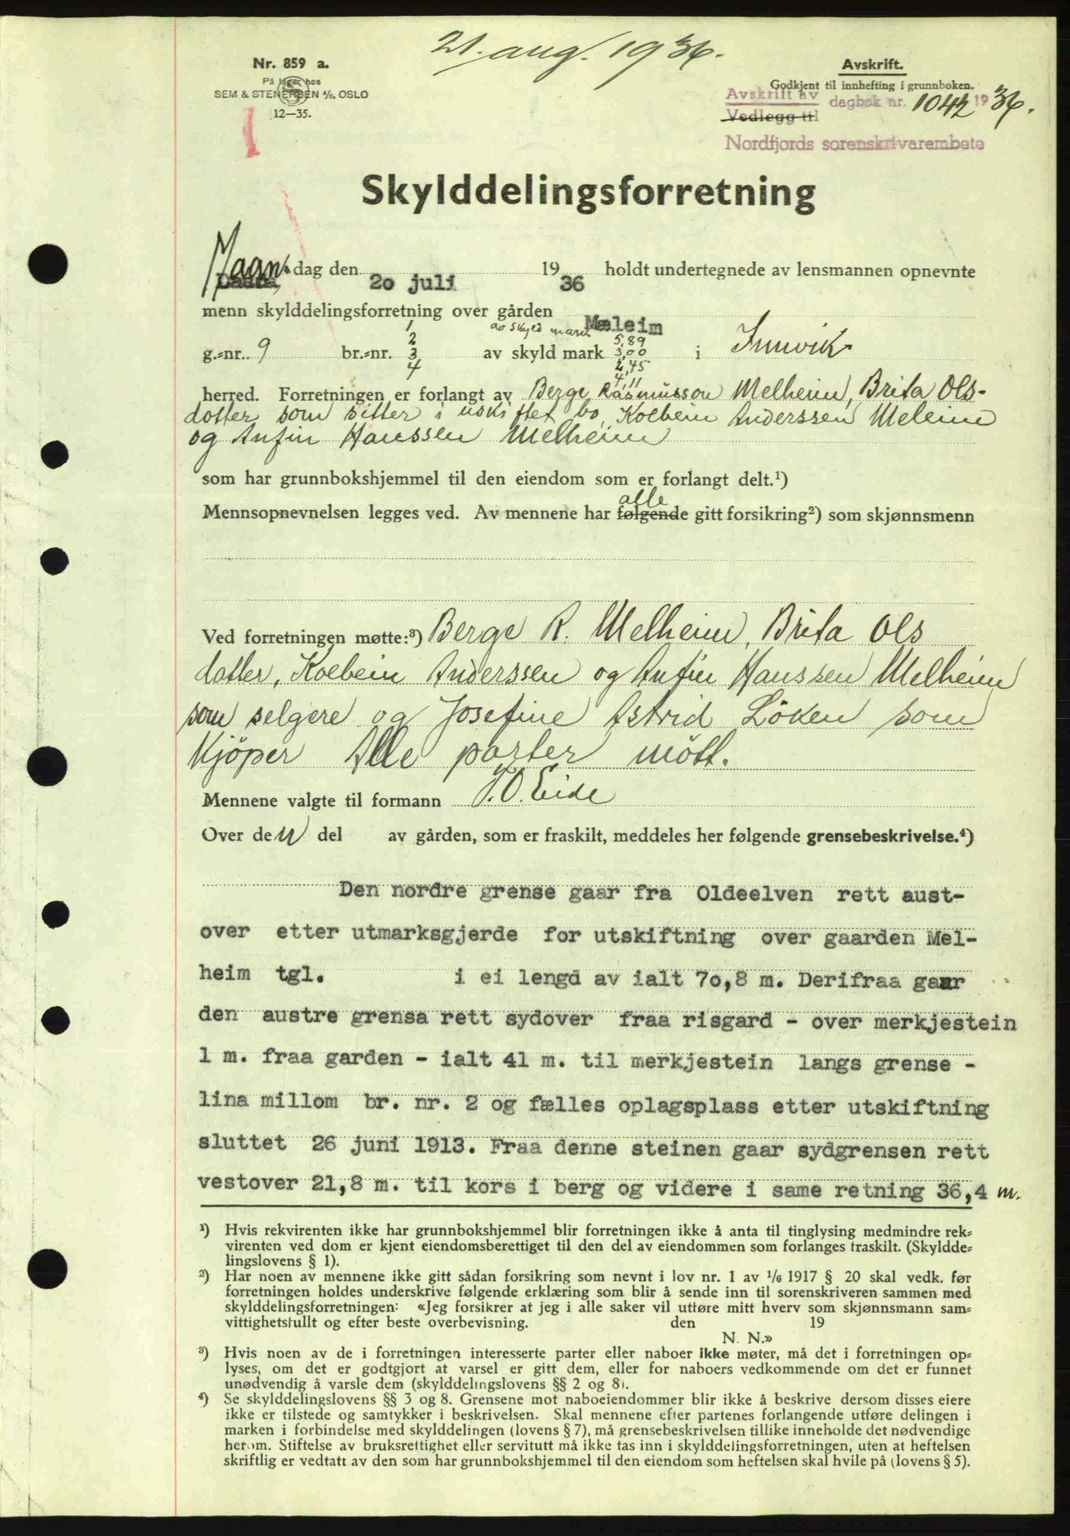 21. aug. 1936.
Nr. 859 a.
På lager hos
SEM & STENERSEN A/S, OSLO
12—35.
Avskrift.
Godkjent til innhefting i grunnboken.
Avskrift av
Vedlegg til
dagbok nr. 1042 1936.
Nordfjords sorenskrivarembete
Skylddelingsforretning
Maandag den 20 juli 1936 holdt undertegnede av lensmannen opnevnte
menn skylddelingsforretning over gården Mæleim
av skyld mark
g.=nr. 9 br.=nr. 1 2 3 4 av skyld mark 5,89 3,00 2,45 4,11 i Innvik
herred. Forretningen er forlangt av Berge Rasmusson Melheim, Brita Ols-
dotter som sitter i uskiftet bo, Kolbein Anderssen Meleim
og Anfin Hanssen Melheim
som har grunnbokshjemmel til den eiendom som er forlangt delt.¹)
alle
Mennsopnevnelsen legges ved. Av mennene har følgende gitt forsikring²) som skjønnsmenn
Ved forretningen møtte:³) Berge R. Melheim, Brita Ols
datter, Kolbein Anderssen og Anfin Hanssen Melheim
som selgere og Josefine Astrid Löken som
Kjöper Alle parter mött.
Mennene valgte til formann J. O. Eide
Over den del av gården, som er fraskilt, meddeles her følgende grensebeskrivelse.⁴)
Den nordre grense gaar fra Oldeelven rett aust-
over etter utmarksgjerde for utskiftning over gaarden Mel-
heim tgl. i ei lengd av ialt 70,8 m. Derifraa gaar
den austre grensa rett sydover fraa risgard - over merkjestein
1 m. fraa garden - ialt 41 m. til merkjestein langs grense -
lina millom br. nr. 2 og fælles oplagsplass etter utskiftning
sluttet 26 juni 1913. Fraa denne steinen gaar sydgrensen rett
vestover 21,8 m. til kors i berg og videre i same retning 36,4 m.
¹) Hvis rekvirenten ikke har grunnbokshjemmel blir forretningen ikke å anta til tinglysing medmindre rek=
virenten ved dom er kjent eiendomsberettiget til den del av eiendommen som forlanges fraskilt. (Skyldde=
lingslovens § 1).
²) Har noen av mennene ikke gitt sådan forsikring som nevnt i lov nr. 1 av 1/6 1917 § 20 skal vedk. før
forretningen holdes underskrive følgende erklæring som blir å sende inn til sorenskriveren sammen med
skylddelingsforretningen: «Jeg forsikrer at jeg i alle saker vil utføre mitt hverv som skjønnsmann sam=
vittighetsfullt og efter beste overbevisning. den 19
N. N.»
³) Hvis noen av de i forretningen interesserte parter eller naboer ikke møter, må det i forretningen op=
lyses, om det er godtgjort at varsel er gitt dem, eller for naboers vedkommende om det er funnet
unødvendig å varsle dem (skylddelingslovens §§ 2 og 8).
⁴) Se skylddelingslovens §§ 3 og 8. Grensene mot naboeiendommer blir ikke å beskrive dersom disses eiere
ikke er tilstede og samtykker i beskrivelsen. Skal mennene efter partenes forlangende utføre delingen i
marken i forbindelse med skylddelingen (lovens § 7), må grensebeskrivelsen tillike inneholde det nødvendige
herom. Stiftelse av bruksrettighet eller servitutt må ikke tas inn i skylddelingsforretningen, uten at heftelsen
skriftlig er vedtatt av den som har grunnbokshjemmel til den eiendom som heftelsen skal hvile på (lovens § 5).